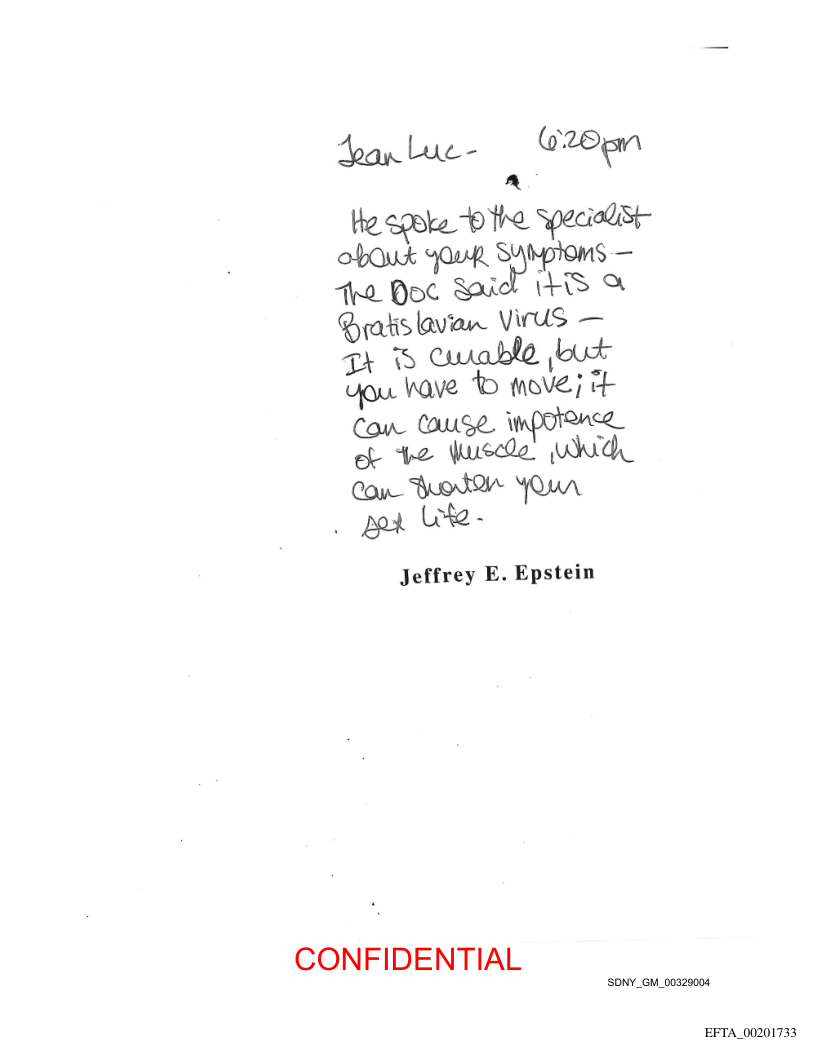 Jean Luc - 6:20pm
He spoke to the specialist
about your symptoms -
The Doc said it is a
Bratislavian Virus -
It is curable, but
you have to move; it
can cause impotence
of the muscle, which
can shorten your
sex life.
Jeffrey E. Epstein
CONFIDENTIAL
SDNY_GM_00329004
EFTA_00201733